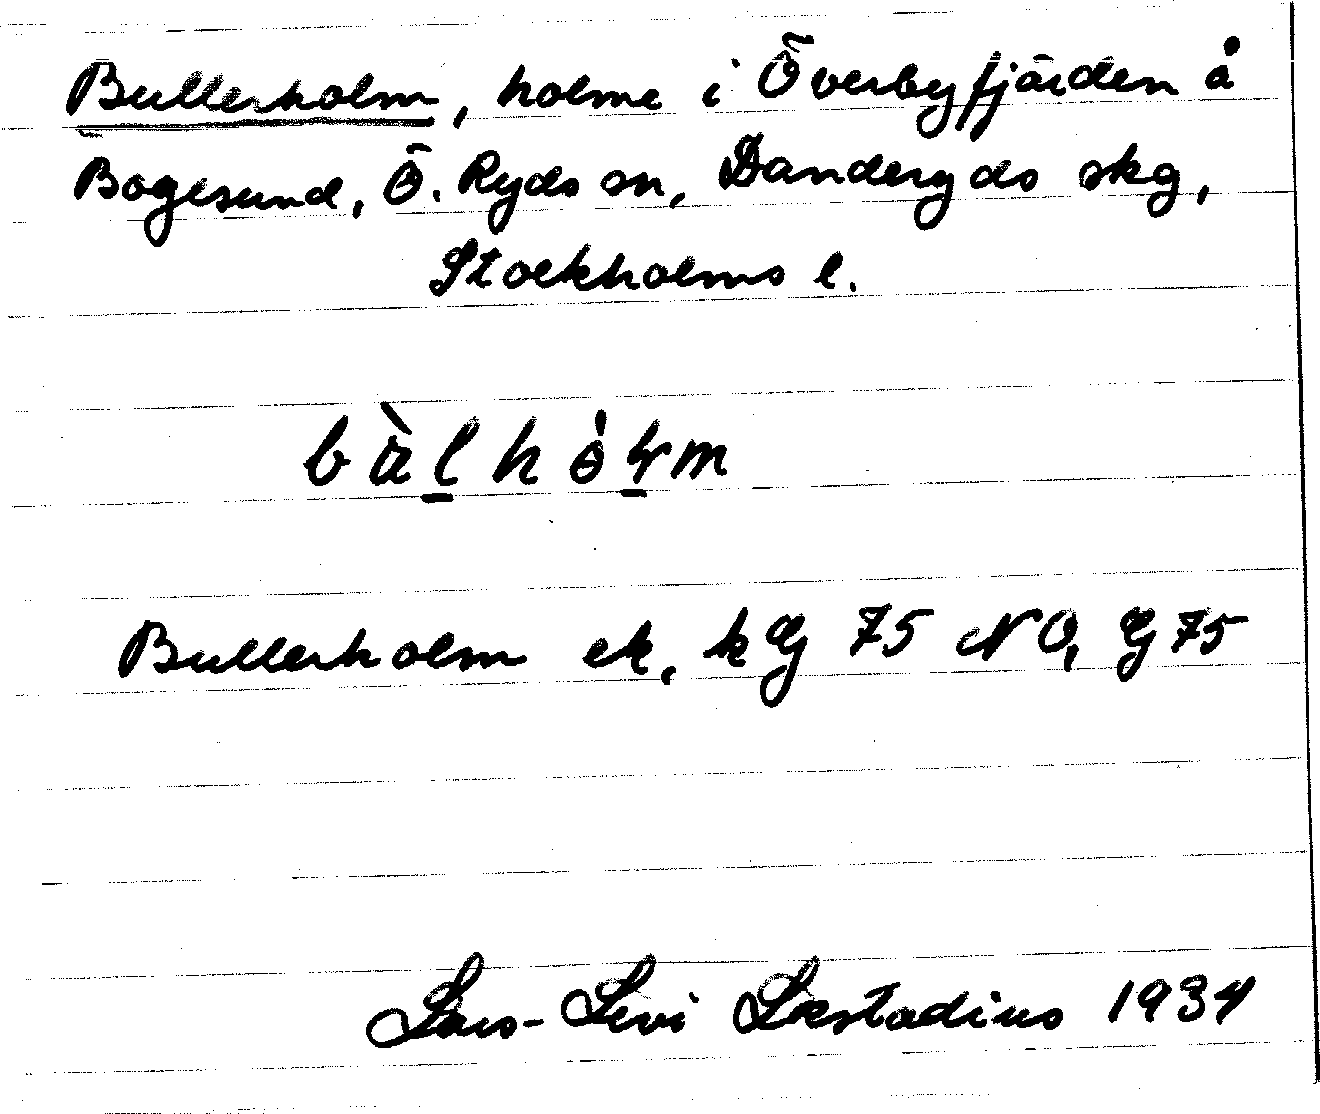 Bullerholm, holme i Överbyfjärden å
Bogesund, Ö. Ryds sn, Danderyds skg,
Stockholms l.
Bullerholm ek, kG 75 NO, G 75
Lars-Levi Læstadius 1934